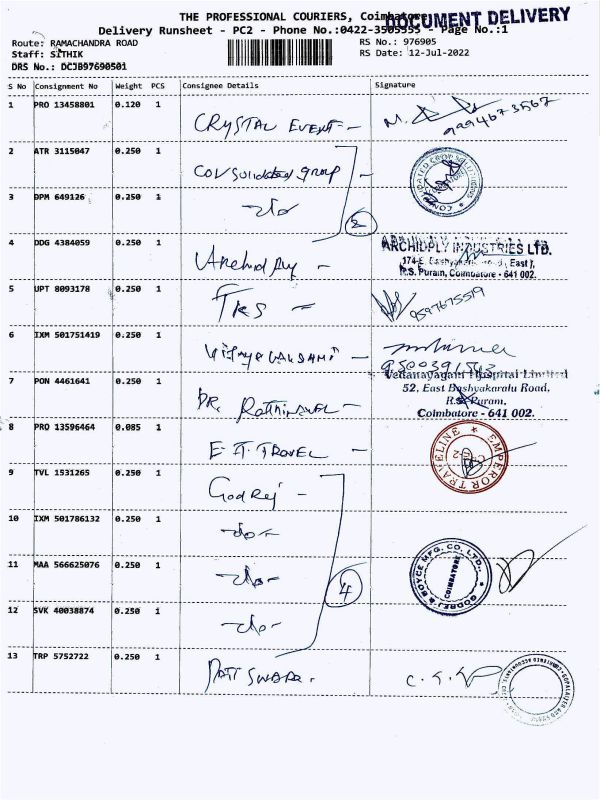 THE PROFESSIONAL COURIERS, Coimbatore
DOCUMENT DELIVERY
Delivery Runsheet - PC2 - Phone No.:0422-3505555 - Page No.:1
Route: RAMACHANDRA ROAD
RS No.: 976905
Staff: SITHIK
RS Date: 12-Jul-2022
DRS No.: DCJB97690501
S No Consignment No Weight PCS Consignee Details Signature
1 PRO 13458801 0.120 1 CRYSTAL EVENT - M. 9994673567
2 ATR 3115047 0.250 1 Consolidated group -
3 DPM 649126 0.250 1 -do-
2
4 DDG 4384059 0.250 1 Archid ply -
ARCHIDPLY INDUSTRIES LTD.
174-E, East),
R.S. Puram, Coimbatore - 641 002.
5 UPT 8093178 0.250 1 TKS - 9597675519
6 IXM 501751419 0.250 1 Vijaya LAKSAMI -
7 PON 4461641 0.250 1 DR. -
Vedanayagam Hospital Limited
52, East Bashyakaralu Road,
R.S. Puram,
Coimbatore - 641 002.
8 PRO 13596464 0.085 1 E.T. TRAVEL -
EMPEROR TRAVELINE
9 TVL 1531265 0.250 1 Godrej -
10 IXM 501786132 0.250 1 -do-
11 MAA 566625076 0.250 1 -do-
4
GODREJ & BOYCE MFG. CO. LTD.
COIMBATORE
12 SVK 40038874 0.250 1 -do-
13 TRP 5752722 0.250 1
CHARTERED ACCOUNTANTS